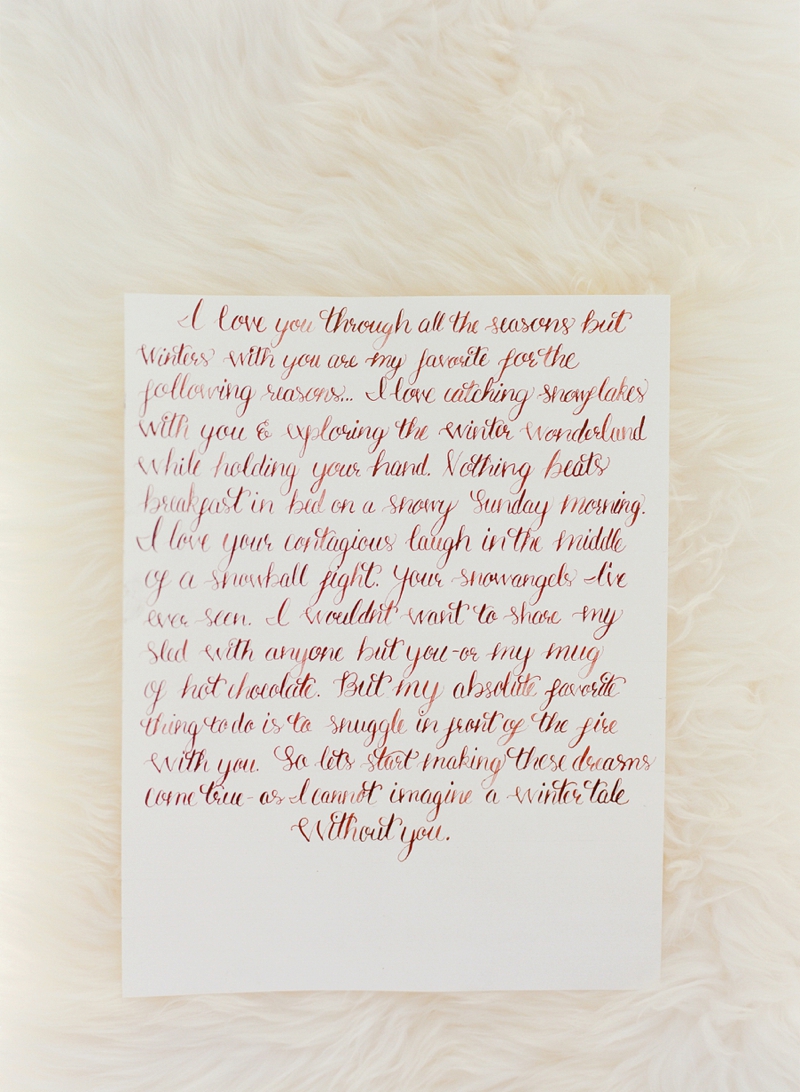 I love you through all the seasons but
winters with you are my favorite for the
following reasons... I love catching snowflakes
with you & exploring the winter wonderland
while holding your hand. Nothing beats
breakfast in bed on a snowy Sunday morning.
I love your contagious laugh in the middle
of a snowball fight. Your snowangels I've
ever seen. I wouldn't want to share my
sled with anyone but you-or my mug
of hot chocolate. But my absolute favorite
thing to do is to snuggle in front of the fire
with you. So lets start making these dreams
come true - as I cannot imagine a winter tale
without you.